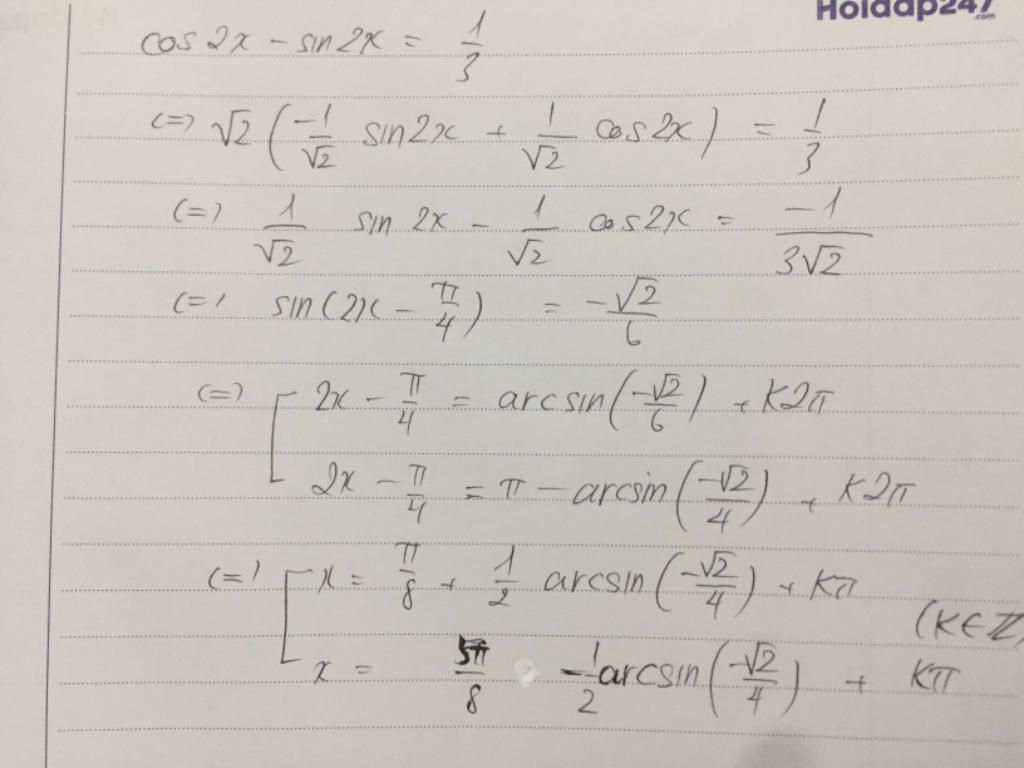 Hoidap247.com
cos 2x - sin 2x = 1/3
(=) √2 (-1/√2 sin2x + 1/√2 cos2x) = 1/3
(=) 1/√2 sin 2x - 1/√2 cos2x = -1/3√2
(=) sin(2x - π/4) = -√2/6
(=) [ 2x - π/4 = arcsin(-√2/6) + K2π
2x - π/4 = π - arcsin(-√2/4) + K2π
(=) [ x = π/8 + 1/2 arcsin(-√2/4) + Kπ
(K∈Z)
x = 5π/8 - 1/2 arcsin(-√2/4) + Kπ